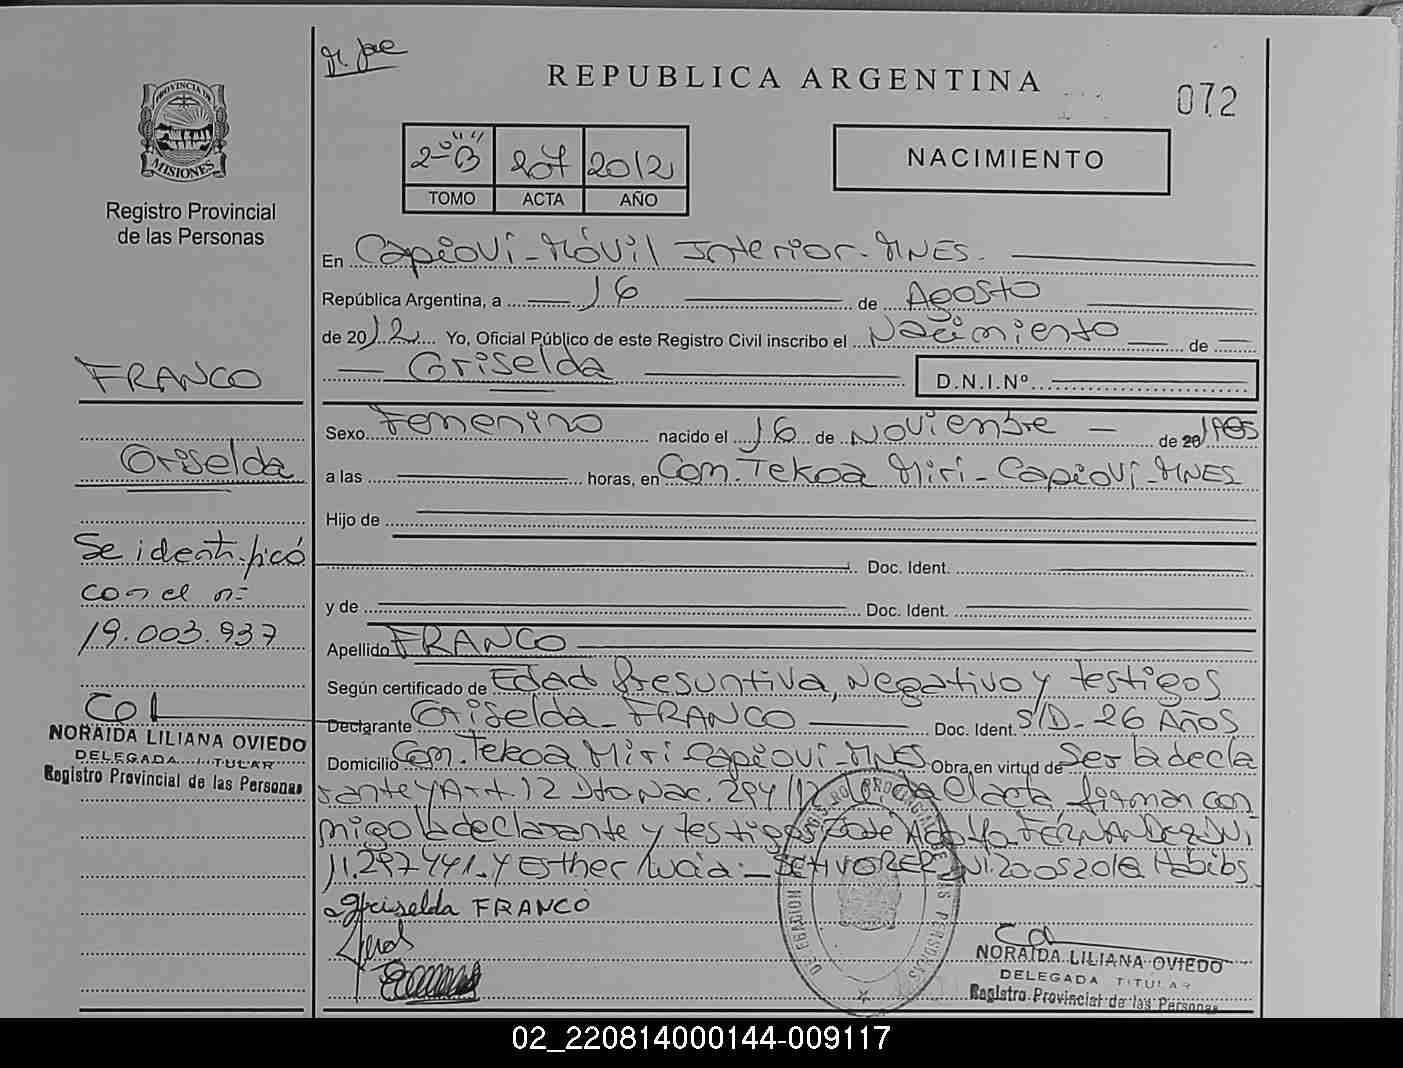 REPUBLICA ARGENTINA
072
PROVINCIA DE
MISIONES
Registro Provincial
de las Personas
2-º "B" 207 2012
TOMO ACTA AÑO
NACIMIENTO
En Capioví - Móvil Interior - MNES.
República Argentina, a 16 de Agosto
de 2012 Yo, Oficial Público de este Registro Civil inscribo el Nacimiento de
Griselda D.N.I.Nº
Sexo Femenino nacido el 16 de Noviembre de 20 1985
a las horas, en Com. Tekoa Miri - Capioví - MNES
Hijo de
Doc. Ident.
y de Doc. Ident.
Apellido FRANCO
Según certificado de Edad Presuntiva, Negativo y testigos
Declarante Griselda - FRANCO Doc. Ident. S/D - 26 Años
Domicilio Com. Tekoa Miri Capioví - MNES Obra en virtud de Ser la decla
rante y Art. 12 Dto Nac. 294/12 Leída el acta firman con
migo la declarante y testigos Adolfo FERNANDEZ DNI
11.297441. y Esther Lucia - DNI. 20052016 Hábiles
Griselda FRANCO
NORAIDA LILIANA OVIEDO
DELEGADA TITULAR
Registro Provincial de las Personas
FRANCO
Griselda
Se identificó
con el nº
19.003.937
NORAIDA LILIANA OVIEDO
DELEGADA TITULAR
Registro Provincial de las Personas
02_220814000144-009117